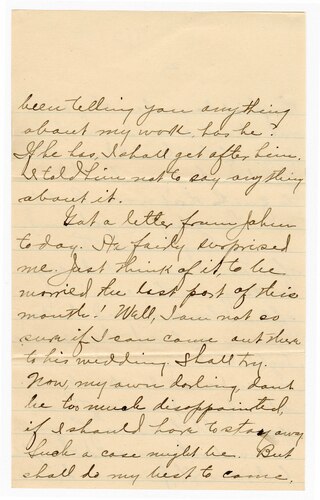 been telling you anything
about my work, has he?
If he has, I shall get after him.
I told him not to say anything
about it.
Got a letter from John
today. He fairly surprised
me. Just think of it, to be
married the last part of this
month! Well, I am not so
sure if I can come out there
to his wedding. I shall try.
Now, my own darling, don't
be too much disappointed,
if I should have to stay away
Such a case might be. But
shall do my best to come.